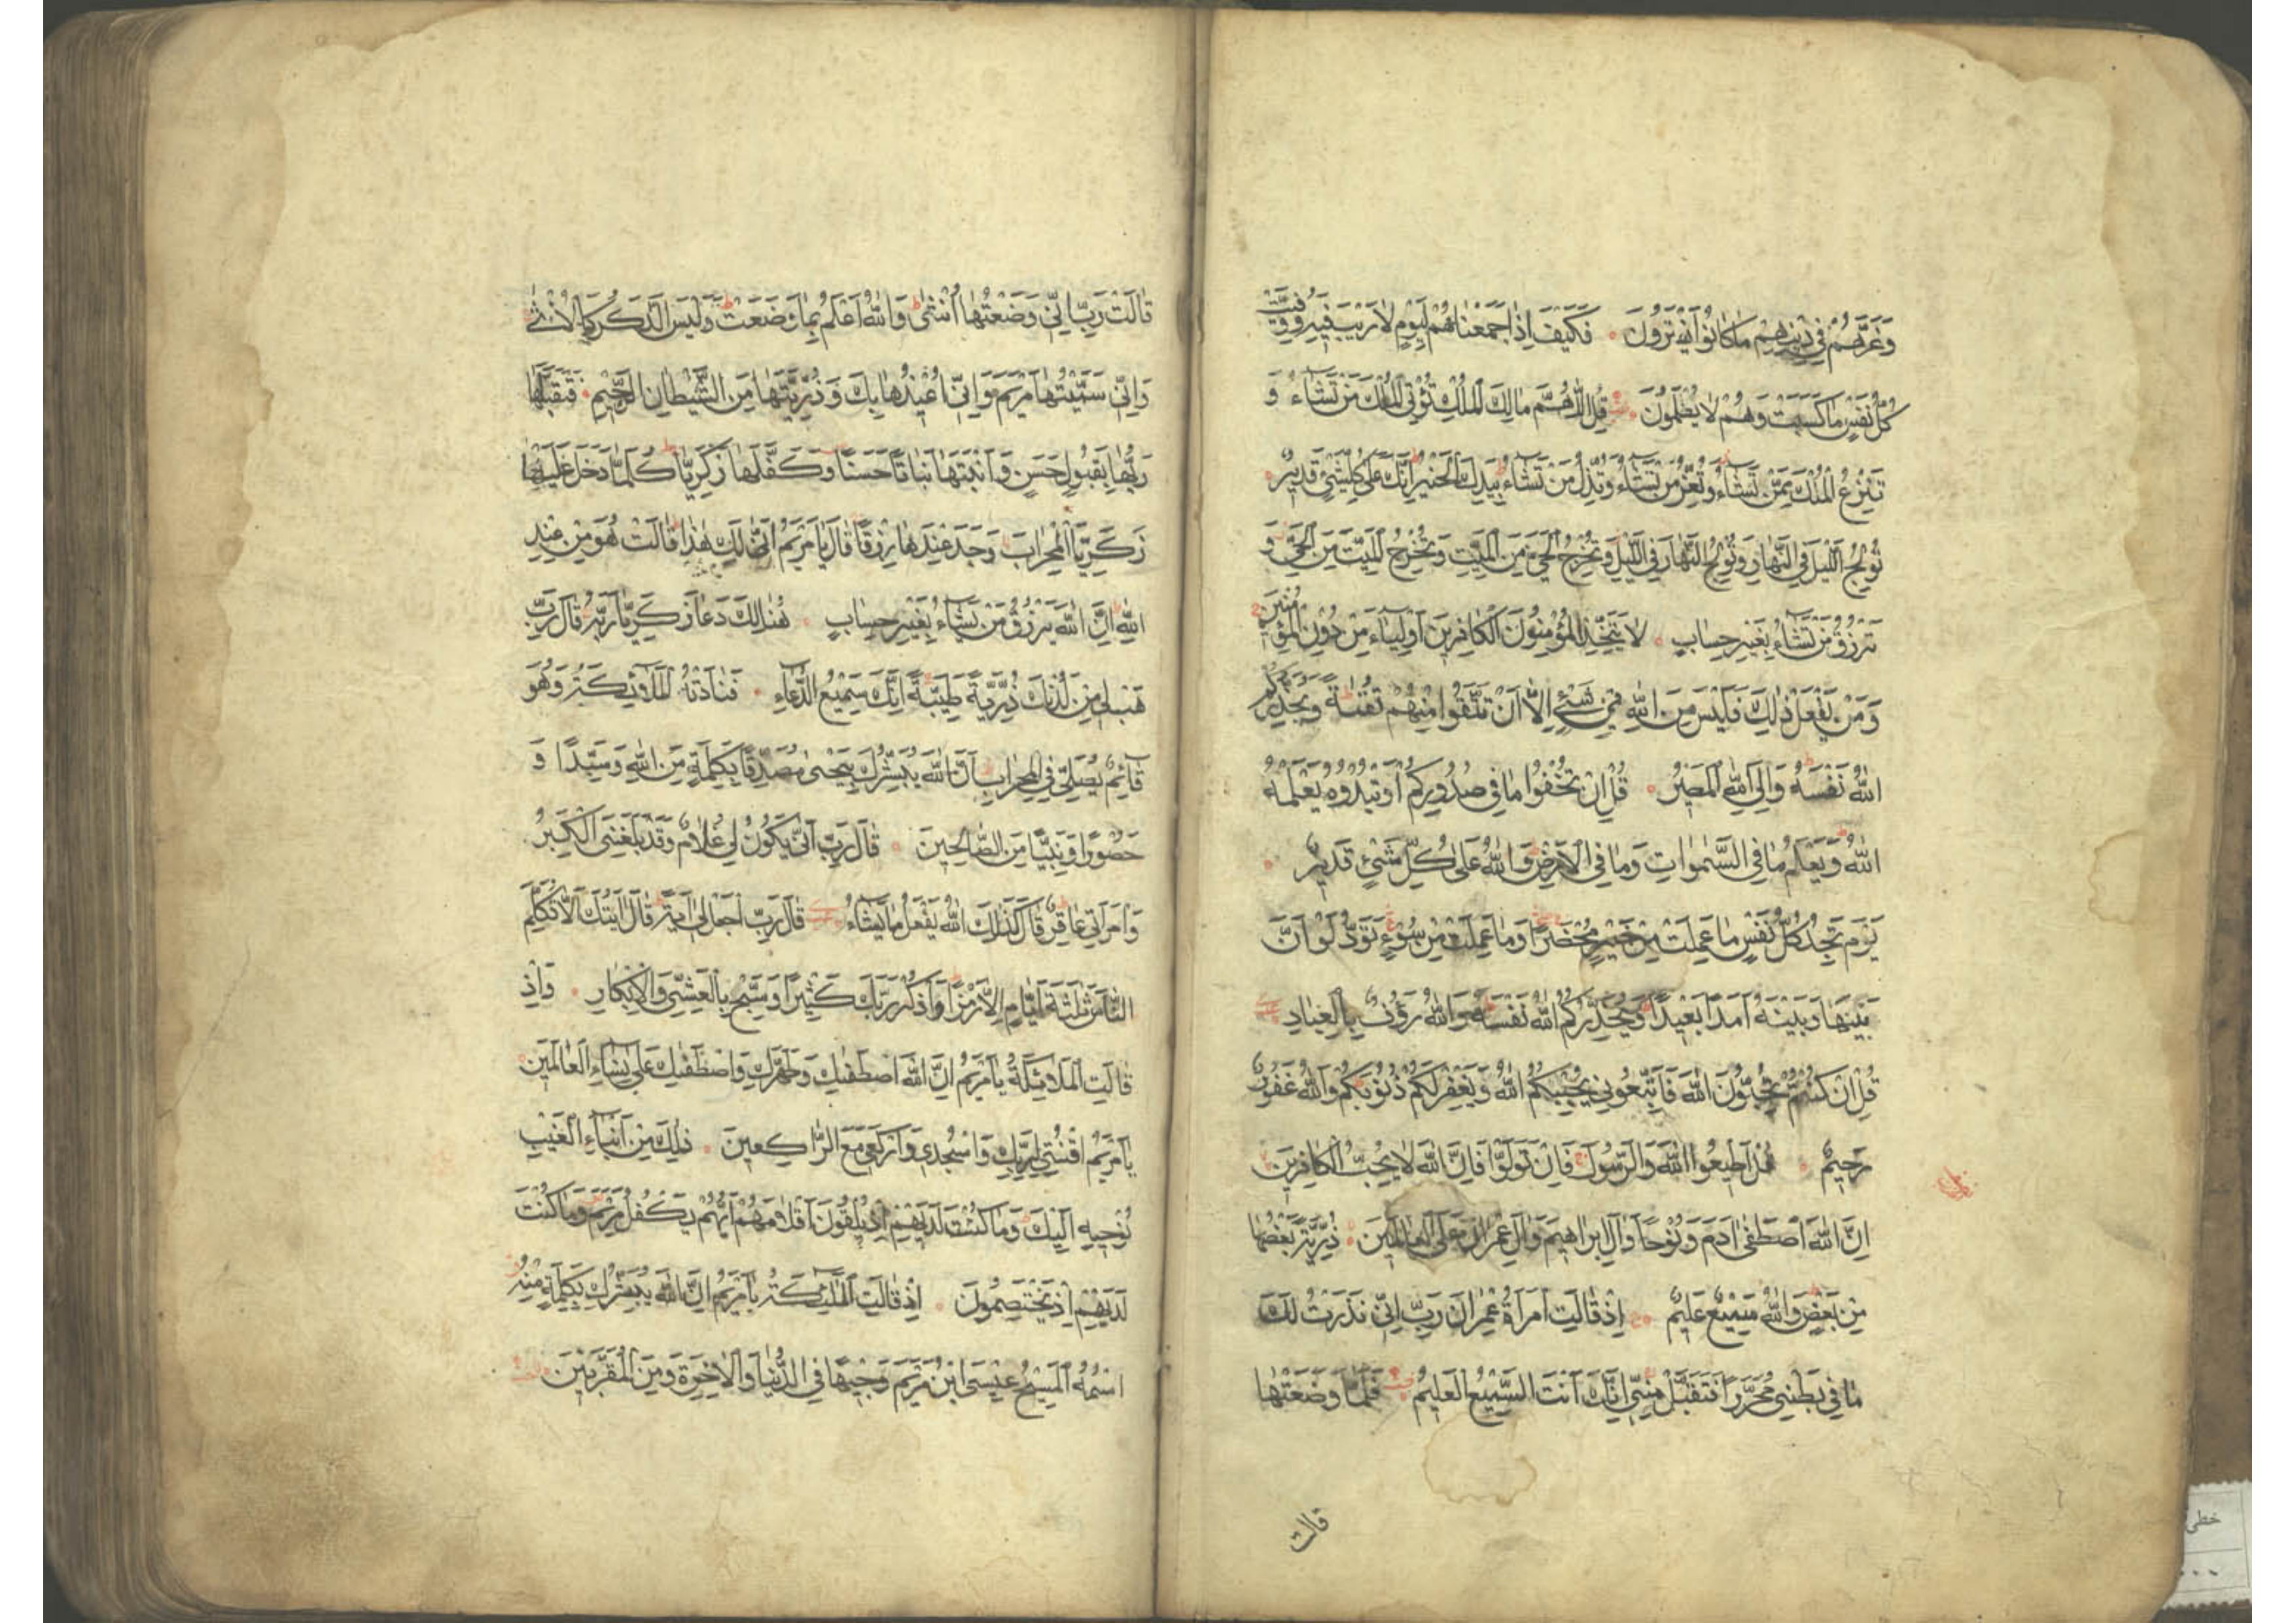 وَغَرَّهُمْ فِي دِينِهِمْ مَا كَانُوا يَفْتَرُونَ فَكَيْفَ اِذَا جَمَعْنَاهُمْ لِيَوْمٍ لَا رَيْبَ فِيهِ وَوُفِّيَتْ
كُلُّ نَفْسٍ مَا كَسَبَتْ وَهُمْ لَا يُظْلَمُونَ قُلِ اللّٰهُمَّ مَالِكَ الْمُلْكِ تُؤْتِي الْمُلْكَ مَنْ تَشَاءُ وَ
تَنْزِعُ الْمُلْكَ مِمَّنْ تَشَاءُ وَتُعِزُّ مَنْ تَشَاءُ وَتُذِلُّ مَنْ تَشَاءُ بِيَدِكَ الْخَيْرُ اِنَّكَ عَلٰى كُلِّ شَيْءٍ قَدِيرٌ
تُولِجُ اللَّيْلَ فِي النَّهَارِ وَتُولِجُ النَّهَارَ فِي اللَّيْلِ وَتُخْرِجُ الْحَيَّ مِنَ الْمَيِّتِ وَتُخْرِجُ الْمَيِّتَ مِنَ الْحَيِّ وَ
تَرْزُقُ مَنْ تَشَاءُ بِغَيْرِ حِسَابٍ لَا يَتَّخِذِ الْمُؤْمِنُونَ الْكَافِرِينَ اَوْلِيَاءَ مِنْ دُونِ الْمُؤْمِنِينَ
وَمَنْ يَفْعَلْ ذٰلِكَ فَلَيْسَ مِنَ اللّٰهِ فِي شَيْءٍ اِلَّا اَنْ تَتَّقُوا مِنْهُمْ تُقٰيةً وَيُحَذِّرُكُمُ
اللّٰهُ نَفْسَهُ وَاِلَى اللّٰهِ الْمَصِيرُ قُلْ اِنْ تُخْفُوا مَا فِي صُدُورِكُمْ اَوْ تُبْدُوهُ يَعْلَمْهُ
اللّٰهُ وَيَعْلَمُ مَا فِي السَّمٰوَاتِ وَمَا فِي الْاَرْضِ وَاللّٰهُ عَلٰى كُلِّ شَيْءٍ قَدِيرٌ
يَوْمَ تَجِدُ كُلُّ نَفْسٍ مَا عَمِلَتْ مِنْ خَيْرٍ مُحْضَرًا وَمَا عَمِلَتْ مِنْ سُوءٍ تَوَدُّ لَوْ اَنَّ
بَيْنَهَا وَبَيْنَهُ اَمَدًا بَعِيدًا وَيُحَذِّرُكُمُ اللّٰهُ نَفْسَهُ وَاللّٰهُ رَؤُفٌ بِالْعِبَادِ
قُلْ اِنْ كُنْتُمْ تُحِبُّونَ اللّٰهَ فَاتَّبِعُونِي يُحْبِبْكُمُ اللّٰهُ وَيَغْفِرْ لَكُمْ ذُنُوبَكُمْ وَاللّٰهُ غَفُورٌ
رَحِيمٌ قُلْ اَطِيعُوا اللّٰهَ وَالرَّسُولَ فَاِنْ تَوَلَّوْا فَاِنَّ اللّٰهَ لَا يُحِبُّ الْكَافِرِينَ
اِنَّ اللّٰهَ اصْطَفٰى اٰدَمَ وَنُوحًا وَاٰلَ اِبْرَاهِيمَ وَاٰلَ عِمْرَانَ عَلَى الْعَالَمِينَ ذُرِّيَّةً بَعْضُهَا
مِنْ بَعْضٍ وَاللّٰهُ سَمِيعٌ عَلِيمٌ اِذْ قَالَتِ امْرَاَةُ عِمْرَانَ رَبِّ اِنِّي نَذَرْتُ لَكَ
مَا فِي بَطْنِي مُحَرَّرًا فَتَقَبَّلْ مِنِّي اِنَّكَ اَنْتَ السَّمِيعُ الْعَلِيمُ فَلَمَّا وَضَعَتْهَا
قالت
قَالَتْ رَبِّ اِنِّي وَضَعْتُهَا اُنْثٰى وَاللّٰهُ اَعْلَمُ بِمَا وَضَعَتْ وَلَيْسَ الذَّكَرُ كَالْاُنْثٰى
وَاِنِّي سَمَّيْتُهَا مَرْيَمَ وَاِنِّي اُعِيذُهَا بِكَ وَذُرِّيَّتَهَا مِنَ الشَّيْطَانِ الرَّجِيمِ فَتَقَبَّلَهَا
رَبُّهَا بِقَبُولٍ حَسَنٍ وَاَنْبَتَهَا نَبَاتًا حَسَنًا وَكَفَّلَهَا زَكَرِيَّا كُلَّمَا دَخَلَ عَلَيْهَا
زَكَرِيَّا الْمِحْرَابَ وَجَدَ عِنْدَهَا رِزْقًا قَالَ يَا مَرْيَمُ اَنّٰى لَكِ هٰذَا قَالَتْ هُوَ مِنْ عِنْدِ
اللّٰهِ اِنَّ اللّٰهَ يَرْزُقُ مَنْ يَشَاءُ بِغَيْرِ حِسَابٍ هُنَالِكَ دَعَا زَكَرِيَّا رَبَّهُ قَالَ رَبِّ
هَبْ لِي مِنْ لَدُنْكَ ذُرِّيَّةً طَيِّبَةً اِنَّكَ سَمِيعُ الدُّعَاءِ فَنَادَتْهُ الْمَلٰئِكَةُ وَهُوَ
قَائِمٌ يُصَلِّي فِي الْمِحْرَابِ اَنَّ اللّٰهَ يُبَشِّرُكَ بِيَحْيٰى مُصَدِّقًا بِكَلِمَةٍ مِنَ اللّٰهِ وَسَيِّدًا وَ
حَصُورًا وَنَبِيًّا مِنَ الصَّالِحِينَ قَالَ رَبِّ اَنّٰى يَكُونُ لِي غُلَامٌ وَقَدْ بَلَغَنِيَ الْكِبَرُ
وَامْرَاَتِي عَاقِرٌ قَالَ كَذٰلِكَ اللّٰهُ يَفْعَلُ مَا يَشَاءُ قَالَ رَبِّ اجْعَلْ لِي اٰيَةً قَالَ اٰيَتُكَ اَلَّا تُكَلِّمَ
النَّاسَ ثَلٰثَةَ اَيَّامٍ اِلَّا رَمْزًا وَاذْكُرْ رَبَّكَ كَثِيرًا وَسَبِّحْ بِالْعَشِيِّ وَالْاِبْكَارِ وَاِذْ
قَالَتِ الْمَلَائِكَةُ يَا مَرْيَمُ اِنَّ اللّٰهَ اصْطَفٰيكِ وَطَهَّرَكِ وَاصْطَفٰيكِ عَلٰى نِسَاءِ الْعَالَمِينَ
يَا مَرْيَمُ اقْنُتِي لِرَبِّكِ وَاسْجُدِي وَارْكَعِي مَعَ الرَّاكِعِينَ ذٰلِكَ مِنْ اَنْبَاءِ الْغَيْبِ
نُوحِيهِ اِلَيْكَ وَمَا كُنْتَ لَدَيْهِمْ اِذْ يُلْقُونَ اَقْلَامَهُمْ اَيُّهُمْ يَكْفُلُ مَرْيَمَ وَمَا كُنْتَ
لَدَيْهِمْ اِذْ يَخْتَصِمُونَ اِذْ قَالَتِ الْمَلٰئِكَةُ يَا مَرْيَمُ اِنَّ اللّٰهَ يُبَشِّرُكِ بِكَلِمَةٍ مِنْهُ
اسْمُهُ الْمَسِيحُ عِيسَى ابْنُ مَرْيَمَ وَجِيهًا فِي الدُّنْيَا وَالْاٰخِرَةِ وَمِنَ الْمُقَرَّبِينَ
خطی